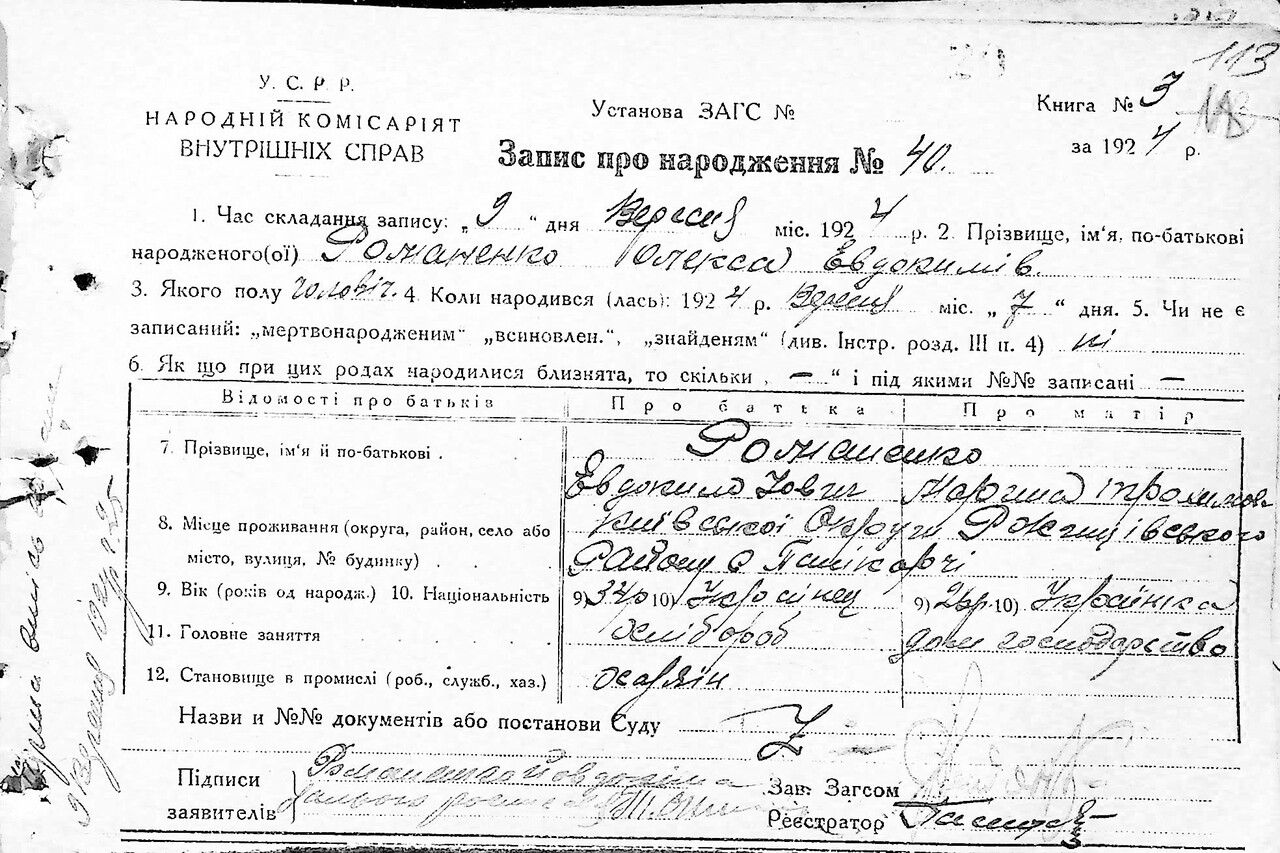 113
У. С. Р. Р.
НАРОДНІЙ КОМІСАРІЯТ
ВНУТРІШНІХ СПРАВ
Установа ЗАГС №
Книга № 3
за 1924 р.
Запис про народження № 40.
1. Час складання запису: „ 9 “ дня Вересня міс. 1924 р. 2. Прізвище, ім'я, по-батькові
народженого(ої) Романенко Олекса Евдокимів.
3. Якого полу чоловіч. 4. Коли народився (лась): 1924 р. Вересня міс. „ 7 “ дня. 5. Чи не є
записаний: „мертвонародженим“ „всиновлен.“, „знайденям“ (див. Інстр. розд. III п. 4) ні
6. Як що при цих родах народилися близнята, то скільки „ — “ і під якими №№ записані —
Відомості про батьків Про батька Про матір
7. Прізвище, ім'я й по-батькові . Романенко
Евдоким Марина
8. Місце проживання (округа, район, село або Київської Округи
місто, вулиця, № будинку) . . Району с
9. Вік (років од народж.) 10. Національність 9) 34р 10) Украінец 9) 10) Украінка
11. Головне заняття . . . . хлібороб дом господарство
12. Становище в промислі (роб., служб., хаз.) хазяін
Назви и №№ документів або постанови Суду
Підписи
заявителів
Зав. Загсом
Реєстратор